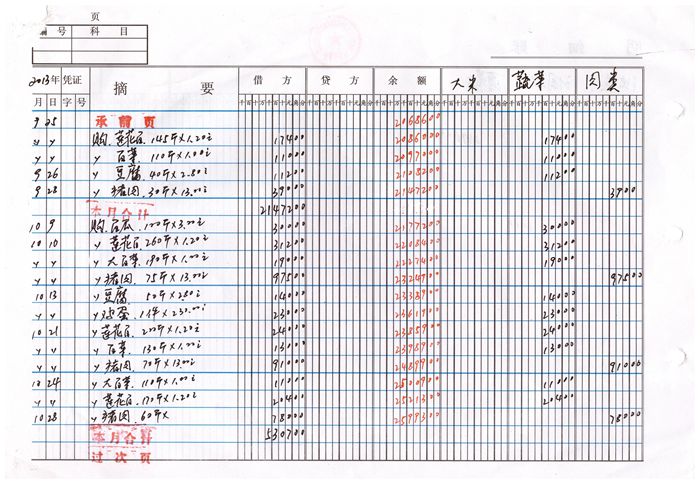 页
编 号 科 目
2013年 凭证 摘 要 借 方 贷 方 余 额 大米 蔬菜 肉类
月 日 字 号 千百十万千百十元角分 千百十万千百十元角分 千百十万千百十元角分
9 25 承前页 2068600
购.莲花白.145斤×1.20元 17400 2086000 17400
〃 白菜.110斤×1.00元 11000 2097000 11000
9 26 〃 豆腐 40斤×2.80元 11200 2108200 11200
9 28 〃 猪肉.30斤×13.00元 39000 2147200 3900
本月合计 2147200
10 9 购. 100斤×3.00元 30000 2177200 30000
10 10 〃 莲花白 260斤×1.20元 31200 2208400 31200
〃 大白菜.190斤×1.00元 19000 2227400 19000
〃 猪肉 75斤×13.00元 97500 2324900 97500
10 13 〃 豆腐 50斤×2.80元 14000 2338900 14000
〃 鸡蛋.1件×230.00元 23000 2361900 23000
10 21 〃 莲花白.200斤×1.20元 24000 2385900 24000
〃 白菜.130斤×1.00元 13000 2398900 13000
〃 猪肉.70斤×13.00元 91000 2489900 91000
10 24 〃 大白菜.110斤×1.00元 11000 2500900 11000
〃 莲花白.170斤×1.20元 20400 2521300 20400
10 28 〃 猪肉.60斤× 78000 2599300 78000
本月合计 530700
过次页